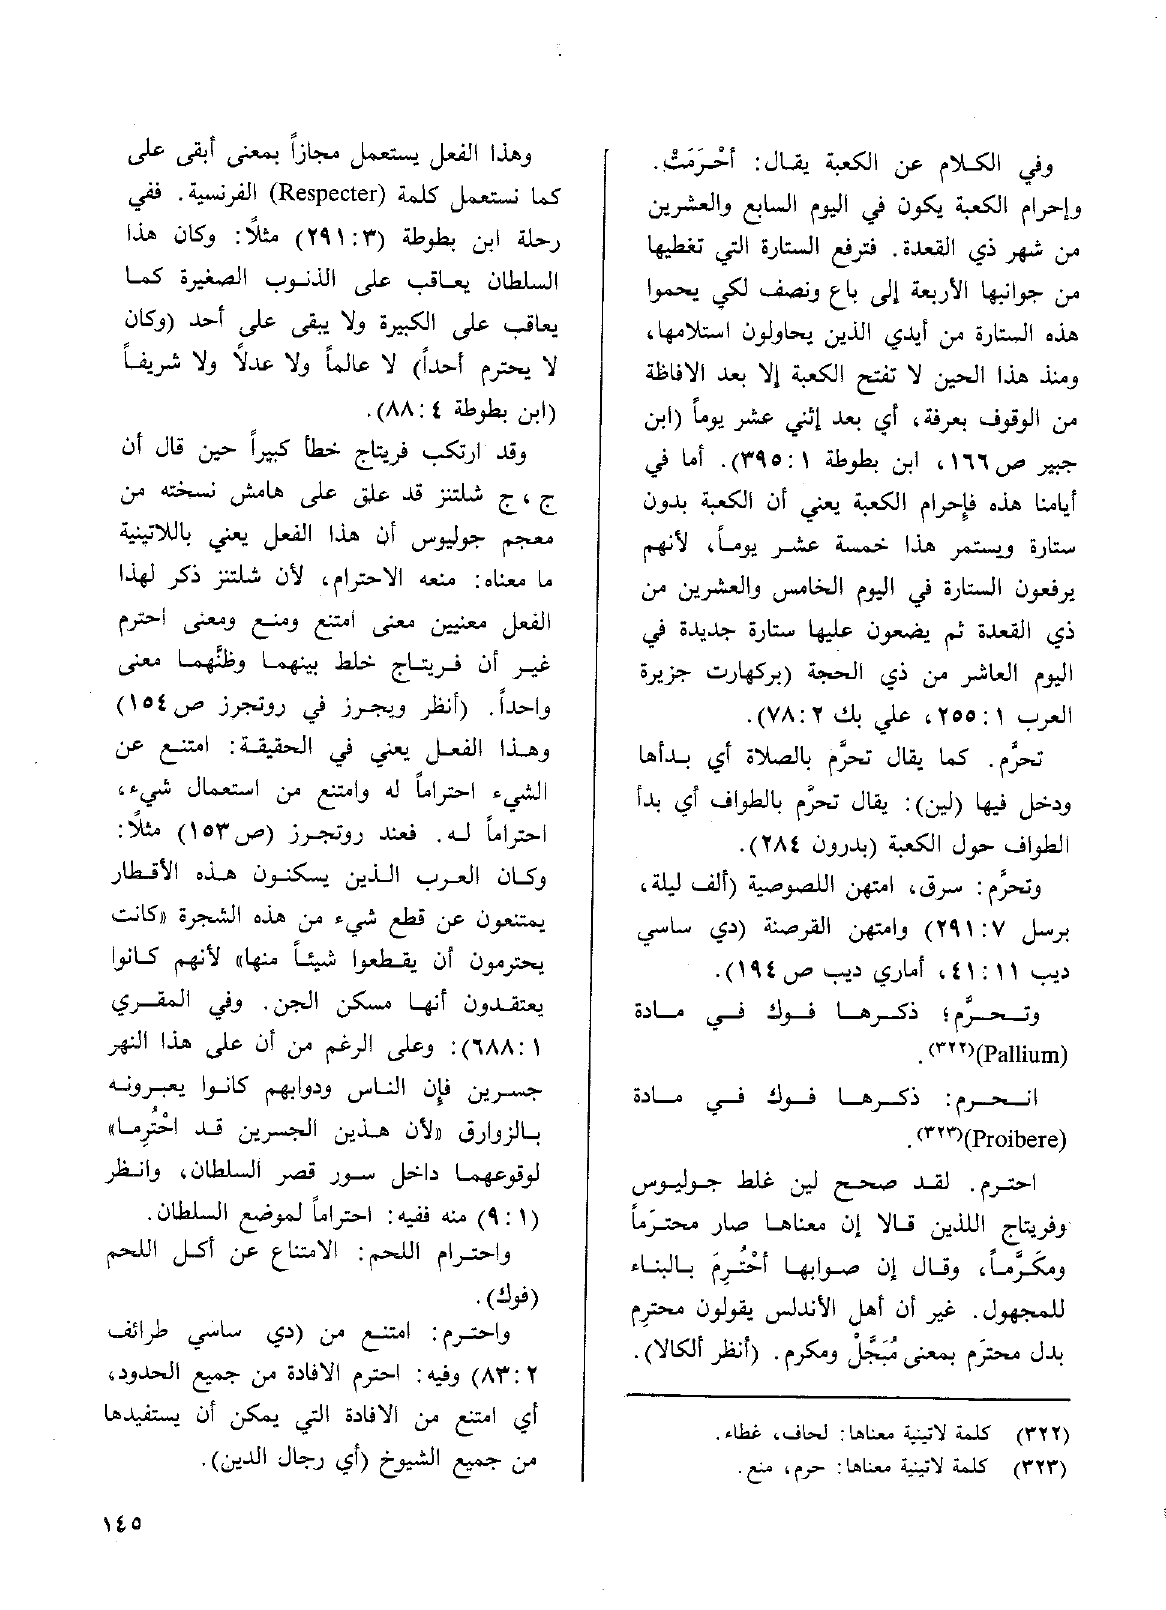 وفي الكلام عن الكعبة يقال: أحْرَمَتْ.
وإحرام الكعبة يكون في اليوم السابع والعشرين
من شهر ذي القعدة. فترفع الستارة التي تغطيها
من جوانبها الأربعة إلى باع ونصف لكي يحموا
هذه الستارة من أيدي الذين يحاولون استلامها،
ومنذ هذا الحين لا تفتح الكعبة إلا بعد الافاظة
من الوقوف بعرفة، أي بعد إثني عشر يوماً (ابن
جبير ص١٦٦، ابن بطوطة ١: ٣٩٥). أما في
أيامنا هذه فإحرام الكعبة يعني أن الكعبة بدون
ستارة ويستمر هذا خمسة عشر يوماً، لأنهم
يرفعون الستارة في اليوم الخامس والعشرين من
ذي القعدة ثم يضعون عليها ستارة جديدة في
اليوم العاشر من ذي الحجة (بركهارت جزيرة
العرب ١: ٢٥٥، علي بك ٢: ٧٨).
تحرَّم. كما يقال تحرَّم بالصلاة أي بدأها
ودخل فيها (لين): يقال تحرَّم بالطواف أي بدأ
الطواف حول الكعبة (بدرون ٢٨٤).
وتحرَّم: سرق، امتهن اللصوصية (ألف ليلة،
برسل ٧: ٢٩١) وامتهن القرصنة (دي ساسي
ديب ١١: ٤١، أماري ديب ص١٩٤).
وتحرَّم؛ ذكرها فوك في مادة
(Pallium)(٣٢٢).
انحرم: ذكرها فوك في مادة
(Proibere)(٣٢٣).
احترم. لقد صحح لين غلط جوليوس
وفريتاج اللذين قالا إن معناها صار محترَماً
ومكَرَّماً، وقال إن صوابها أُحْتُرِمَ بالبناء
للمجهول. غير أن أهل الأندلس يقولون محترم
بدل محترَم بمعنى مُبَجَّلْ ومكرم. (أنظر ألكالا).
(٣٢٢) كلمة لاتينية معناها: لحاف، غطاء.
(٣٢٣) كلمة لاتينية معناها: حرم، منع.
وهذا الفعل يستعمل مجازاً بمعنى أبقى على
كما نستعمل كلمة (Respecter) الفرنسية. ففي
رحلة ابن بطوطة (٣: ٢٩١) مثلاً: وكان هذا
السلطان يعاقب على الذنوب الصغيرة كما
يعاقب على الكبيرة ولا يبقى على أحد (وكان
لا يحترم أحداً) لا عالماً ولا عدلاً ولا شريفاً
(ابن بطوطة ٤: ٨٨).
وقد ارتكب فريتاج خطأ كبيراً حين قال أن
ج، ج شلتنز قد علق على هامش نسخته من
معجم جوليوس أن هذا الفعل يعني باللاتينية
ما معناه: منعه الاحترام، لأن شلتنز ذكر لهذا
الفعل معنيين معنى امتنع ومنع ومعنى احترم
غير أن فريتاج خلط بينهما وظنَّهما معنى
واحداً. (أنظر ويجرز في روتجرز ص١٥٤)
وهذا الفعل يعني في الحقيقة: امتنع عن
الشيء احتراماً له وامتنع من استعمال شيء،
احتراماً له. فعند روتجرز (ص١٥٣) مثلاً:
وكان العرب الذين يسكنون هذه الأقطار
يمتنعون عن قطع شيء من هذه الشجرة «كانت
يحترمون أن يقطعوا شيئاً منها» لأنهم كانوا
يعتقدون أنها مسكن الجن. وفي المقري
١: ٦٨٨): وعلى الرغم من أن على هذا النهر
جسرين فإن الناس ودوابهم كانوا يعبرونه
بالزوارق «لأن هذين الجسرين قد احْتُرِما»
لوقوعهما داخل سور قصر السلطان، وانظر
(١: ٩) منه ففيه: احتراماً لموضع السلطان.
واحترام اللحم: الامتناع عن أكل اللحم
(فوك).
واحترم: امتنع من (دي ساسي طرائف
٢: ٨٣) وفيه: احترم الافادة من جميع الحدود،
أي امتنع من الافادة التي يمكن أن يستفيدها
من جميع الشيوخ (أي رجال الدين).
١٤٥